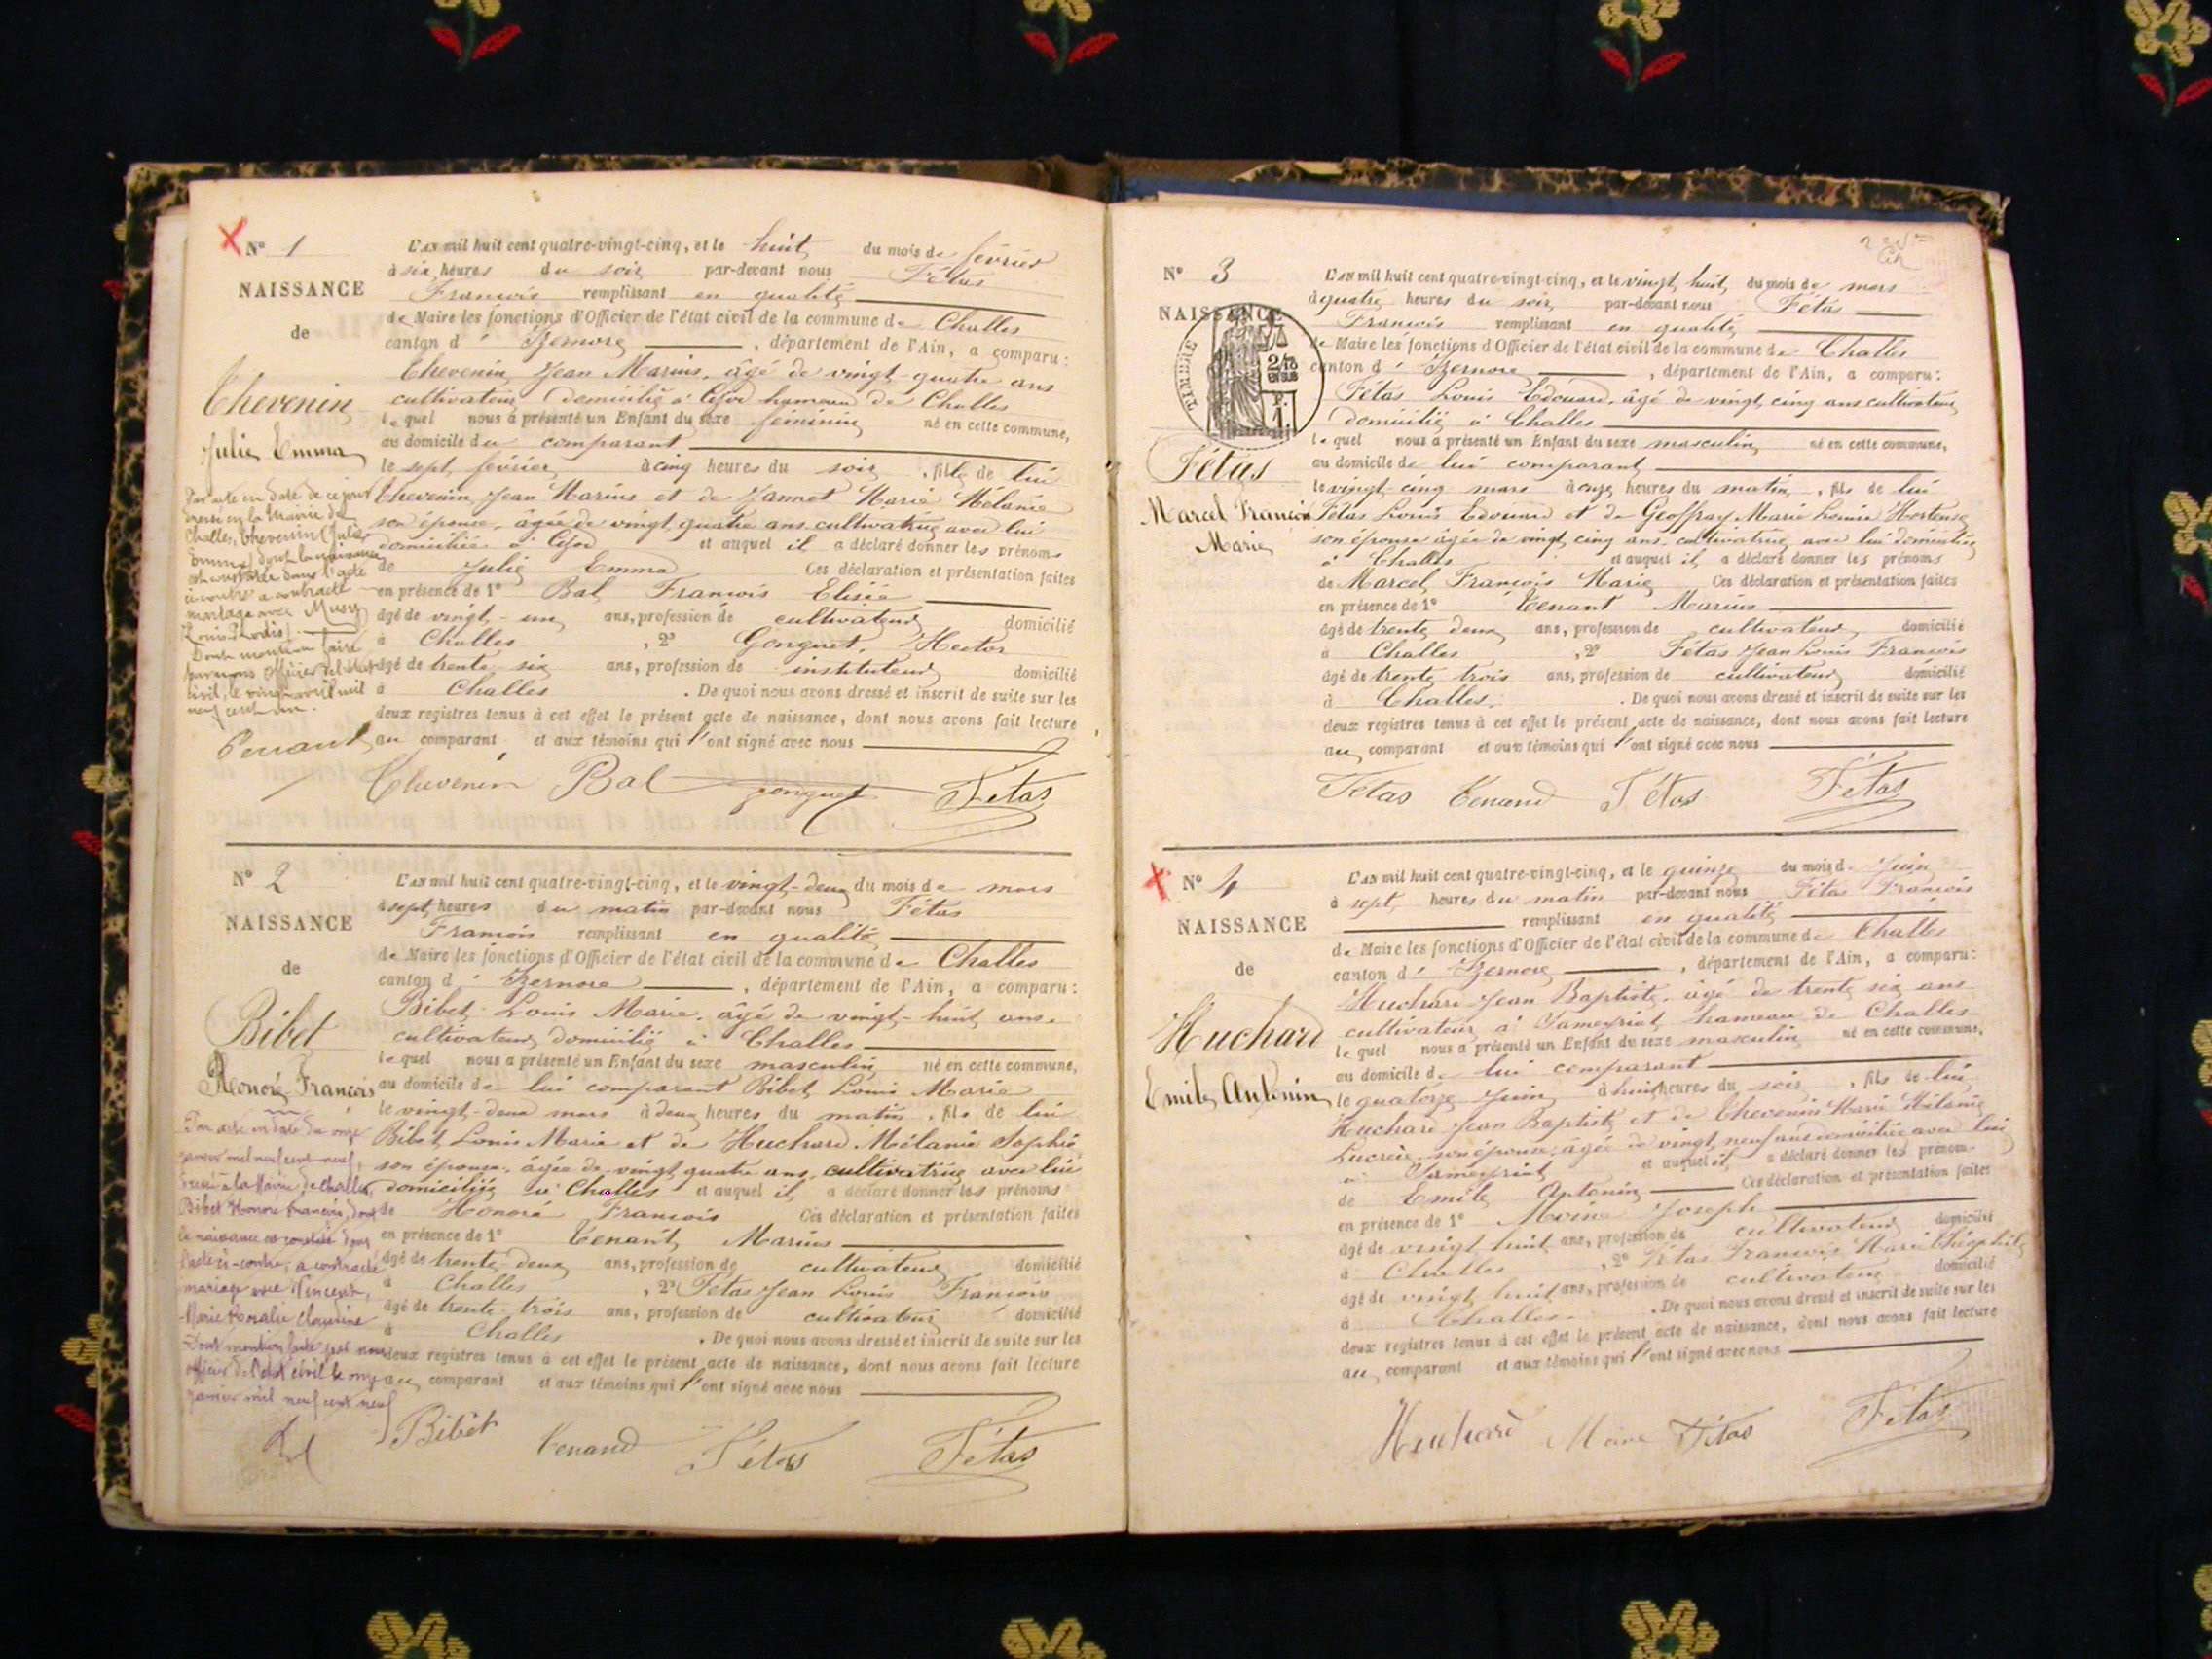 N° 1
NAISSANCE
de
Thevenin
Julie Emma
L'AN mil huit cent quatre-vingt-cinq, et le huit du mois de février
à six heures du soir par-devant nous Fétas
François remplissant en qualité
de Maire les fonctions d'Officier de l'état civil de la commune de Challes
canton d' Izernore, département de l'Ain, a comparu :
Thevenin Jean Marius, âgé de vingt-quatre ans
cultivateur domicilié à hameau de Challes
lequel nous a présenté un Enfant du sexe féminin né en cette commune,
au domicile du comparant
le sept février à cinq heures du soir, fille de lui
Thevenin Jean Marius et de Jannet Marie Mélanie
son épouse, âgée de vingt quatre ans cultivatrice avec lui
domiciliée à et auquel il a déclaré donner les prénoms
de Julie Emma Ces déclaration et présentation faites
en présence de 1° Bal François Elisée
âgé de vingt-un ans, profession de cultivateur domicilié
à Challes, 2° Gonguet, Hector
âgé de trente six ans, profession de instituteur domicilié
à Challes. De quoi nous avons dressé et inscrit de suite sur les
deux registres tenus à cet effet le présent acte de naissance, dont nous avons fait lecture
au comparant et aux témoins qui l'ont signé avec nous
Par acte en date de ce jour
dressé en la Mairie de
Challes, Thevenin (Julie
Emma) dont la naissance
est constatée dans l'acte
ci-contre a contracté
mariage avec
Dont mention faite
par nous Officier de l'état
civil, le vingt avril mil
neuf cent un.
Thevenin Bal Gonguet Fétas
N° 2
NAISSANCE
de
Bibet
Honoré François
L'AN mil huit cent quatre-vingt-cinq, et le vingt-deux du mois de mars
à sept heures du matin par-devant nous Fétas
François remplissant en qualité
de Maire les fonctions d'Officier de l'état civil de la commune de Challes
canton d' Izernore, département de l'Ain, a comparu :
Bibet Louis Marie, âgé de vingt-huit ans,
cultivateur domicilié à Challes
lequel nous a présenté un Enfant du sexe masculin né en cette commune,
au domicile de lui comparant Bibet Louis Marie
le vingt-deux mars à deux heures du matin, fils de lui
Bibet Louis Marie et de Huchard Mélanie Sophie
son épouse, âgée de vingt quatre ans, cultivatrice avec lui
domiciliée à Challes et auquel il a déclaré donner les prénoms
de Honoré François Ces déclaration et présentation faites
en présence de 1° Tenant Marius
âgé de trente-deux ans, profession de cultivateur domicilié
à Challes, 2° Fétas Jean Louis François
âgé de trente-trois ans, profession de cultivateur domicilié
à Challes. De quoi nous avons dressé et inscrit de suite sur les
deux registres tenus à cet effet le présent acte de naissance, dont nous avons fait lecture
au comparant et aux témoins qui l'ont signé avec nous
Par acte en date du onze
janvier mil neuf cent neuf,
dressé à la Mairie de Challes,
Bibet Honoré François, dont
la naissance est constatée dans
l'acte ci-contre, a contracté
mariage avec Vincent,
Marie Rosalie Claudine
Dont mention faite par nous
officier de l'état civil le onze
janvier mil neuf cent neuf
Bibet Tenand Fétas Fétas
N° 3
NAISSANCE
TIMBRE
Fétas
Marcel François
Marie
L'AN mil huit cent quatre-vingt-cinq, et le vingt huit du mois de mars
à quatre heures du soir par-devant nous Fétas
François remplissant en qualité
de Maire les fonctions d'Officier de l'état civil de la commune de Challes
canton d' Izernore, département de l'Ain, a comparu :
Fétas Louis Edouard, âgé de vingt cinq ans cultivateur
domicilié à Challes
lequel nous a présenté un Enfant du sexe masculin né en cette commune,
au domicile de lui comparant
le vingt-cinq mars à onze heures du matin, fils de lui
Fétas Louis Edouard et de Geoffray Marie Louise Hortense
son épouse âgée de vingt cinq ans, cultivatrice avec lui domiciliée
à Challes et auquel il a déclaré donner les prénoms
de Marcel François Marie Ces déclaration et présentation faites
en présence de 1° Tenant Marius
âgé de trente deux ans, profession de cultivateur domicilié
à Challes, 2° Fétas Jean Louis François
âgé de trente trois ans, profession de cultivateur domicilié
à Challes. De quoi nous avons dressé et inscrit de suite sur les
deux registres tenus à cet effet le présent acte de naissance, dont nous avons fait lecture
au comparant et aux témoins qui l'ont signé avec nous
Fétas Tenand Fétas Fétas
N° 4
NAISSANCE
de
Huchard
Emile Antonin
L'AN mil huit cent quatre-vingt-cinq, et le quinze du mois de Juin
à sept heures du matin par-devant nous Fétas François
remplissant en qualité
de Maire les fonctions d'Officier de l'état civil de la commune de Challes
canton d' Izernore, département de l'Ain, a comparu :
Huchard Jean Baptiste, âgé de trente six ans
cultivateur à hameau de Challes
lequel nous a présenté un Enfant du sexe masculin né en cette commune,
au domicile de lui comparant
le quatorze Juin à huit heures du soir, fils de lui
Huchard Jean Baptiste et de Thevenin Marie Mélanie
Lucrèce son épouse, âgée de vingt neuf ans domiciliée avec lui
à et auquel il a déclaré donner les prénoms
de Emile Antonin Ces déclaration et présentation faites
en présence de 1° Moine Joseph
âgé de vingt huit ans, profession de cultivateur domicilié
à Challes, 2° Fétas François Marie Théophile
âgé de vingt huit ans, profession de cultivateur domicilié
à Challes. De quoi nous avons dressé et inscrit de suite sur les
deux registres tenus à cet effet le présent acte de naissance, dont nous avons fait lecture
au comparant et aux témoins qui l'ont signé avec nous
Huchard Moine Fétas Fétas